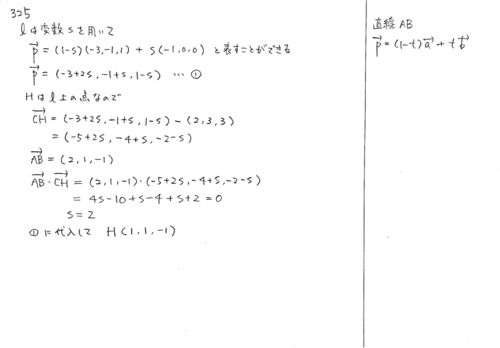 325
lは変数sを用いて
p→ = (1-s)(-3,-1,1) + s(-1,0,0) と表すことができる
p→ = (-3+2s, -1+s, 1-s) … ①
Hはl上の点なので
CH→ = (-3+2s, -1+s, 1-s) - (2,3,3)
= (-5+2s, -4+s, -2-s)
AB→ = (2,1,-1)
AB→・CH→ = (2,1,-1)・(-5+2s, -4+s, -2-s)
= 4s-10+s-4+s+2=0
s=2
①に代入して H(1,1,-1)
直線AB
p→ = (1-t)a→ + t b→